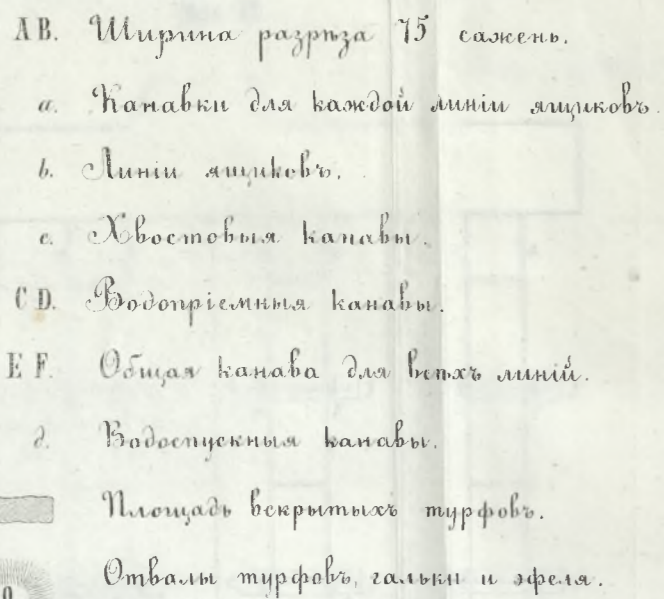 A B. Ширина разрѣза 75 сажень.
a. Канавки для каждой линіи ящиковъ.
b. Линіи ящиковъ.
c. Хвостовыя канавы.
C D. Водопріемныя канавы.
E F. Общая канава для всѣхъ линій.
д. Водоспускныя канавы.
Площадь вскрытыхъ турфовъ.
Отвалы турфовъ, гальки и эфеля.